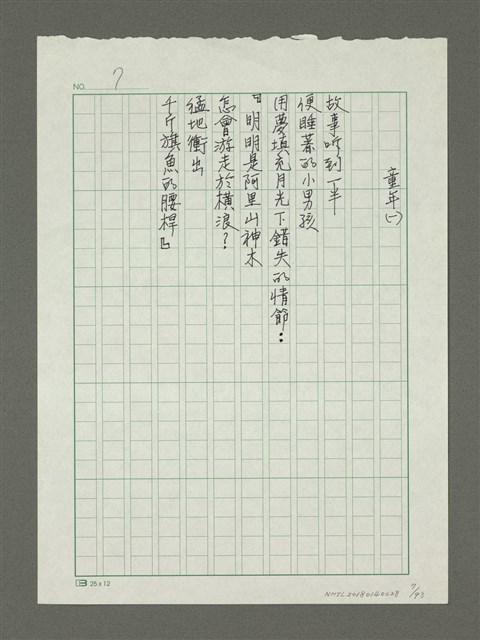 NO. 7
童年(一)
故事听到一半
便睡著的小男孩
用夢填充月光下錯失的情節：
『明明是阿里山神木
怎會游走於橫浪？
猛地衝出
千斤旗魚的腰桿』
25 x 12
NMTL20180140028
7/93